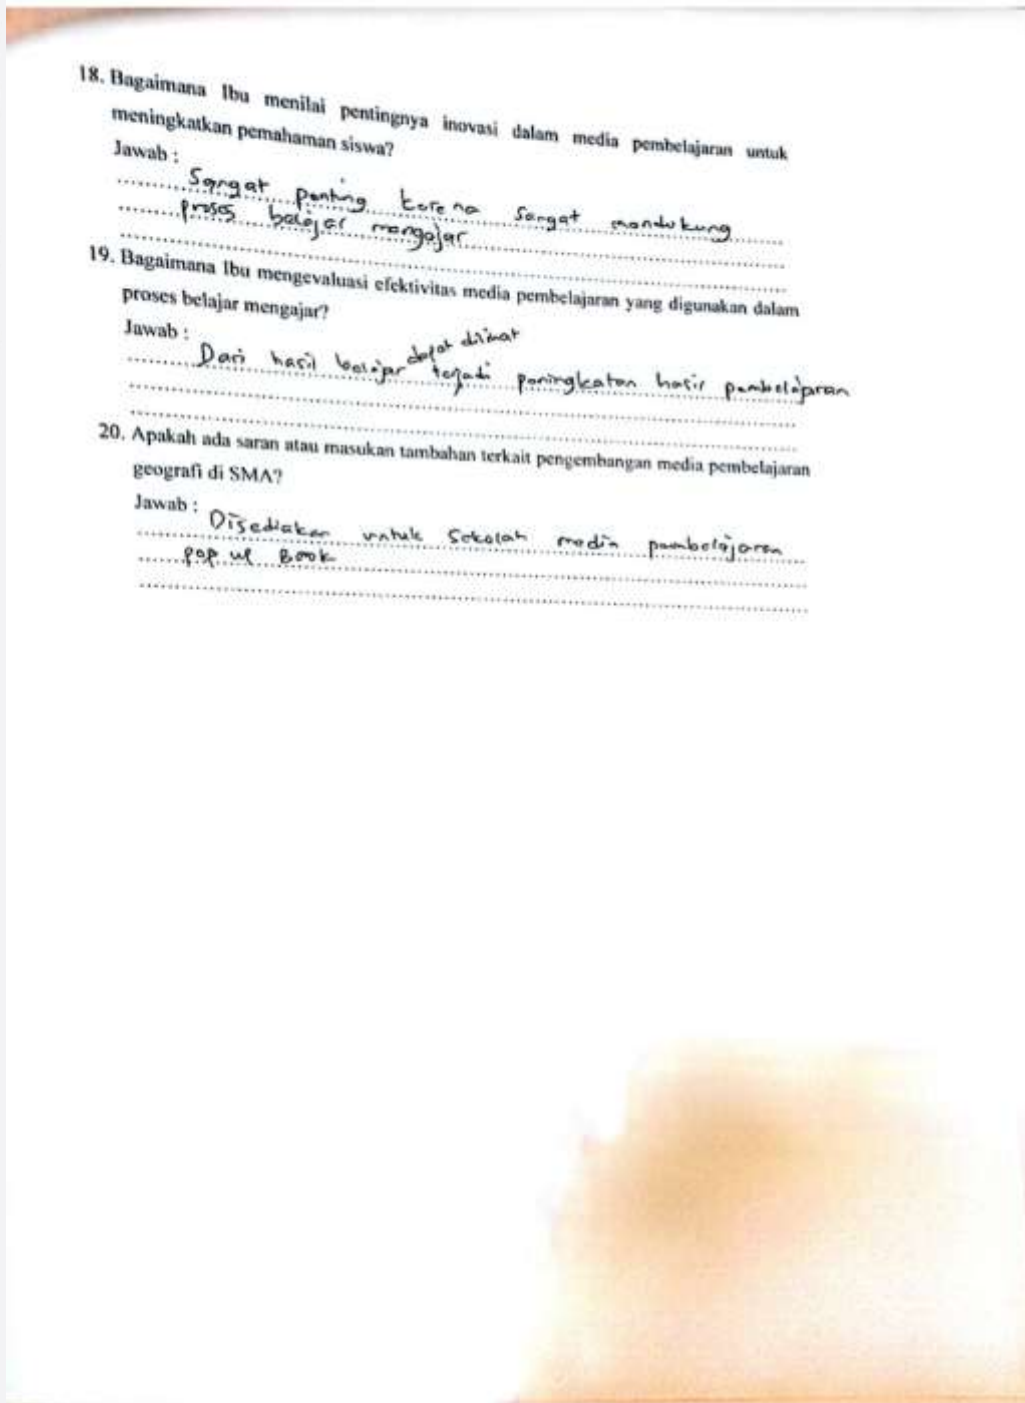 18. Bagaimana Ibu menilai pentingnya inovasi dalam media pembelajaran untuk
meningkatkan pemahaman siswa?
Jawab :
Sangat penting karena sangat mendukung
proses belajar mengajar
19. Bagaimana Ibu mengevaluasi efektivitas media pembelajaran yang digunakan dalam
proses belajar mengajar?
Jawab :
dapat dilihat
Dari hasil belajar terjadi peningkatan hasil pembelajaran
20. Apakah ada saran atau masukan tambahan terkait pengembangan media pembelajaran
geografi di SMA?
Jawab :
Disediakan untuk sekolah media pembelajaran
pop up Book